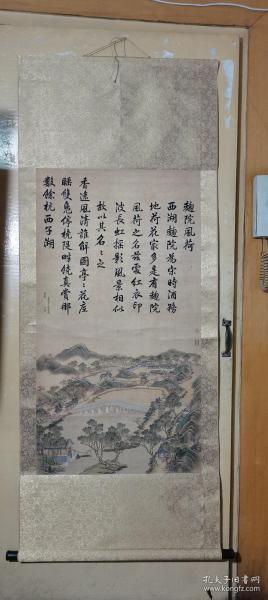 麯院風荷
西湖麯院為宋時酒務
地荷花㝡多是有麯院
風荷之名茲處紅衣印
波長虹搖影風景相似
故以其名名之
香遠風清誰解圖亭亭花底
睡雙鳧停橈隄畔饒真賞那
數餘杭西子湖
孔夫子旧书网